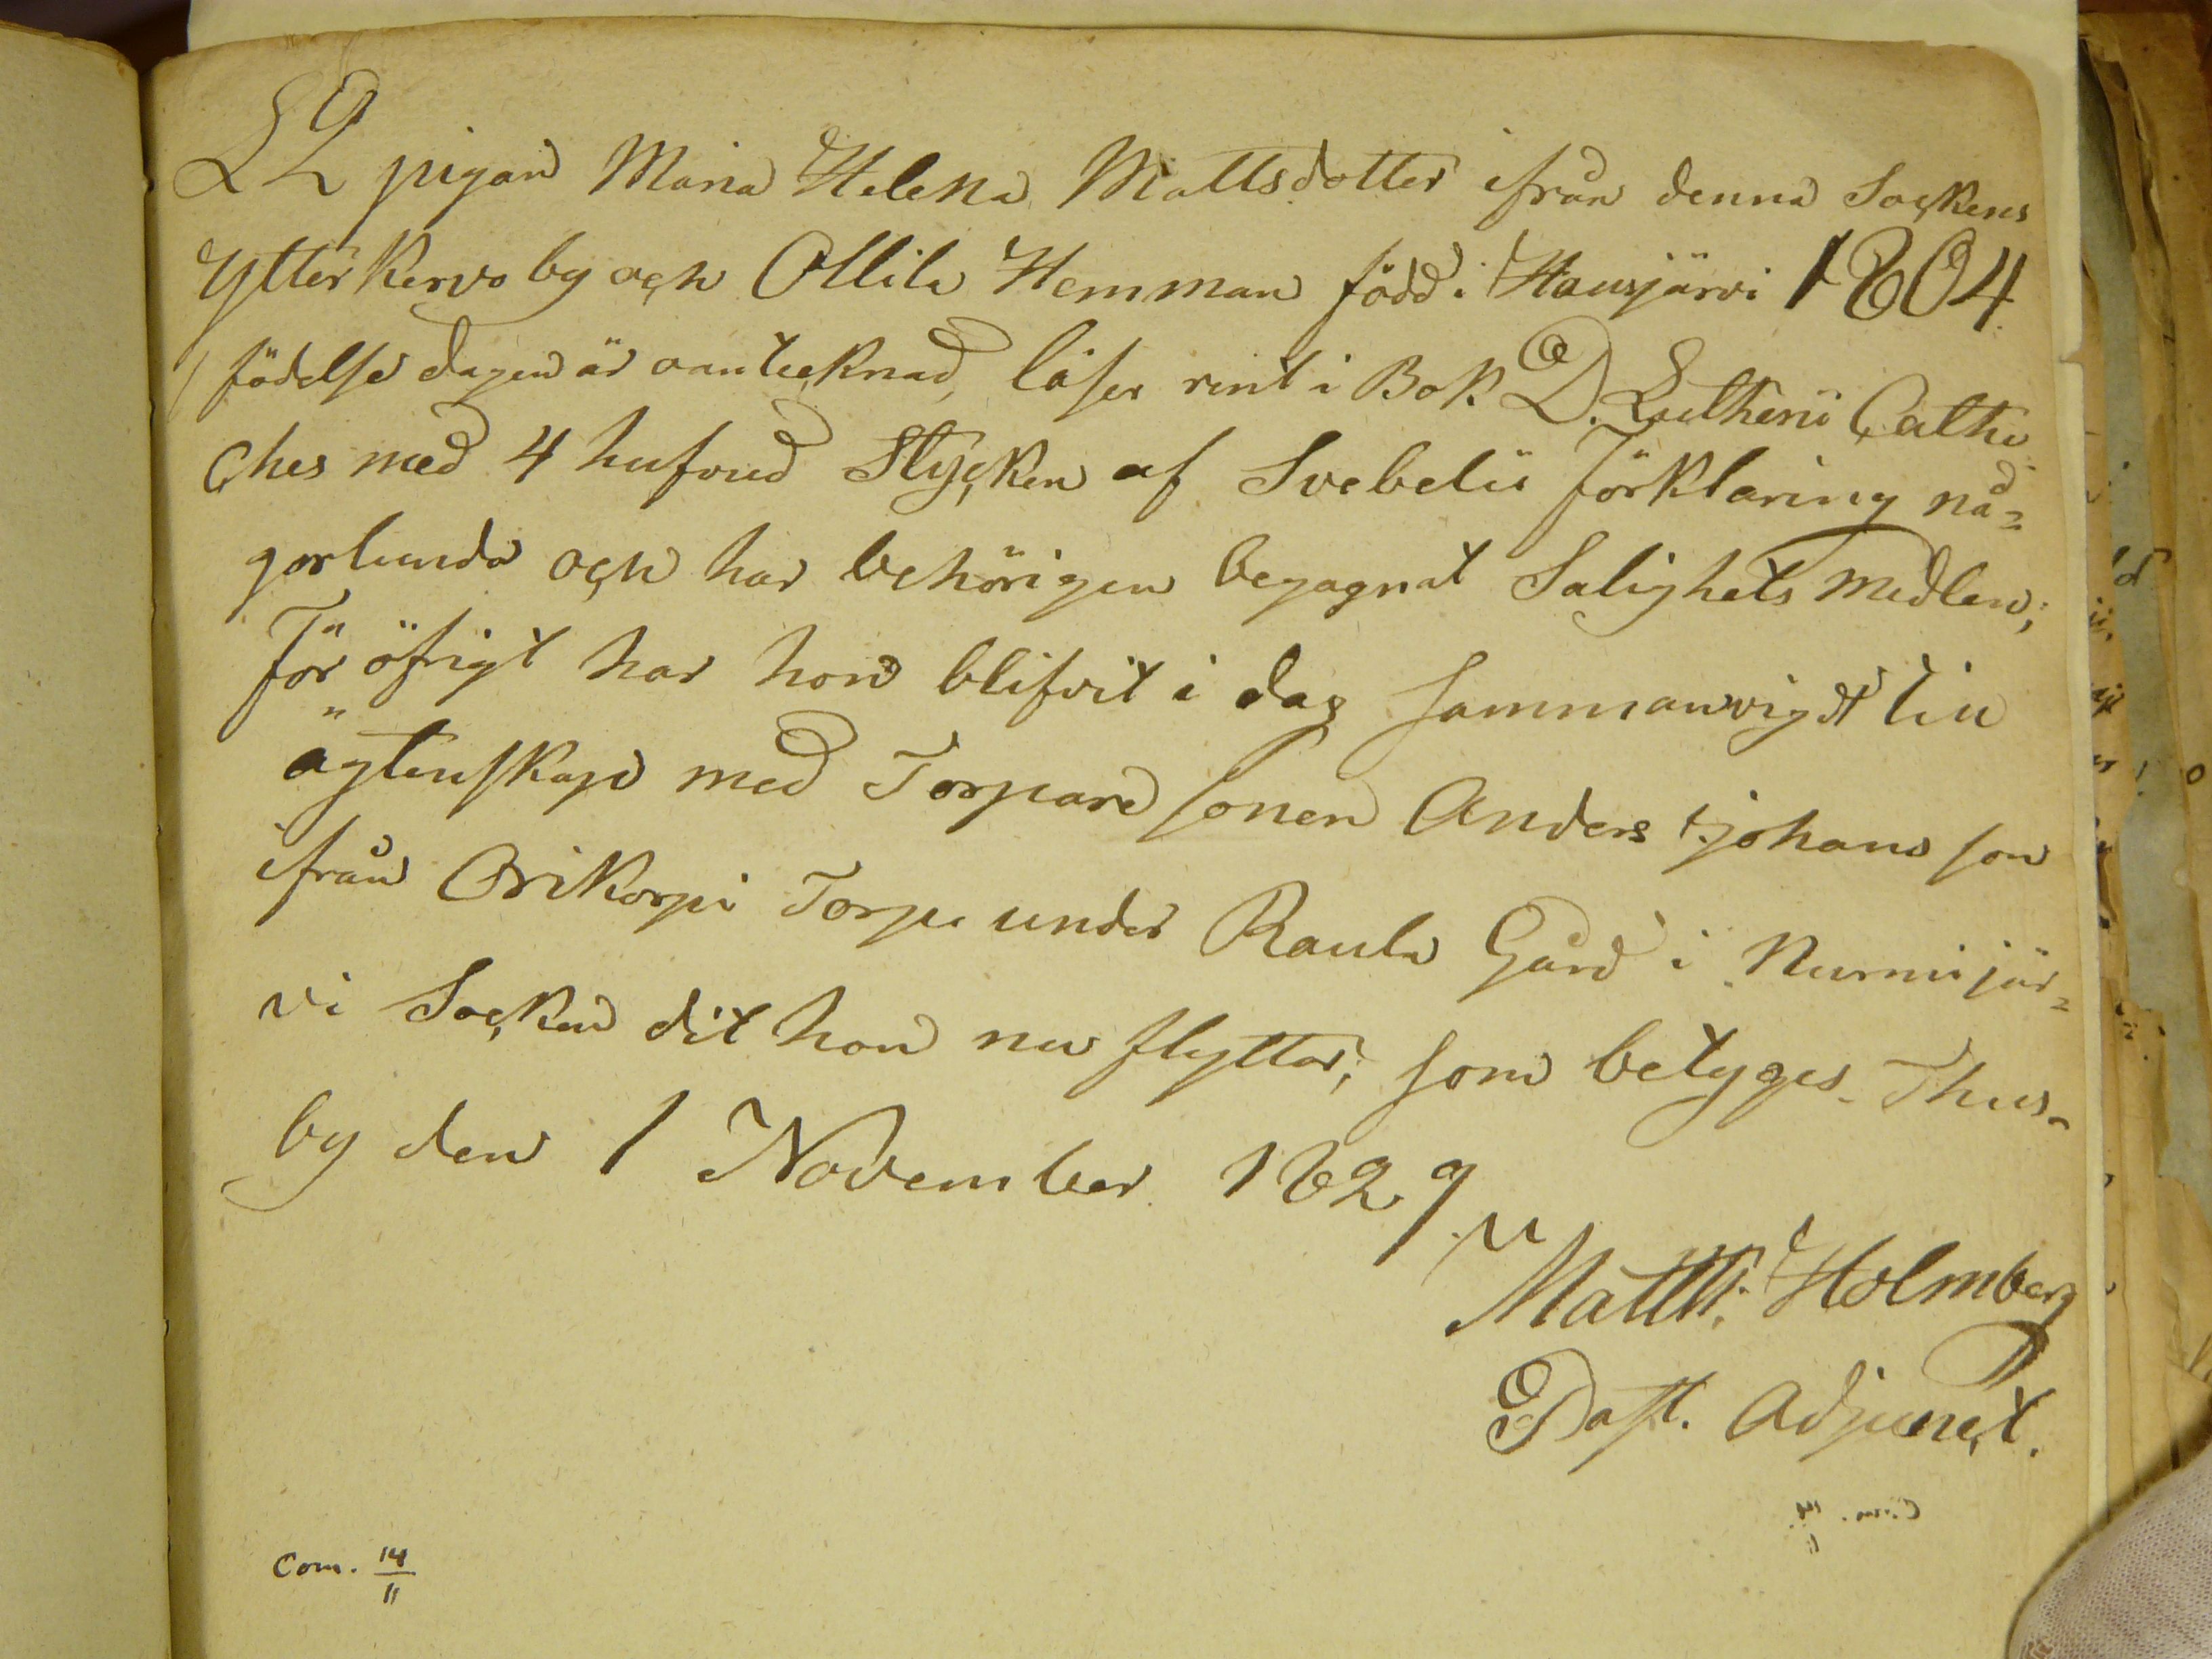 pigan Maria Helena Mattsdotter ifrån denna Sockens
Ytter Kervo by och Ollila Hemman född i Hausjärvi 1804
födelse dagen är oantecknad, läser rent i Bok D. Lutherii Cathe
ches med 4 hufvud Stycken af Svebelii förklaring nå=
gorlunda och har behörigen begagnat Salighets medlen;
För öfrigt har hon blifvit i dag sammanvigd till
ägtenskap med Torpare sonen Anders Johans son
ifrån Orikorpi Torp under Raula Gård i Nurmijär=
vi Socken dit hon nu flyttar; som betyges. Thus-
by den 1 November 1829
Matth: Holmberg
Past. Adjunct.
Com. 14/11